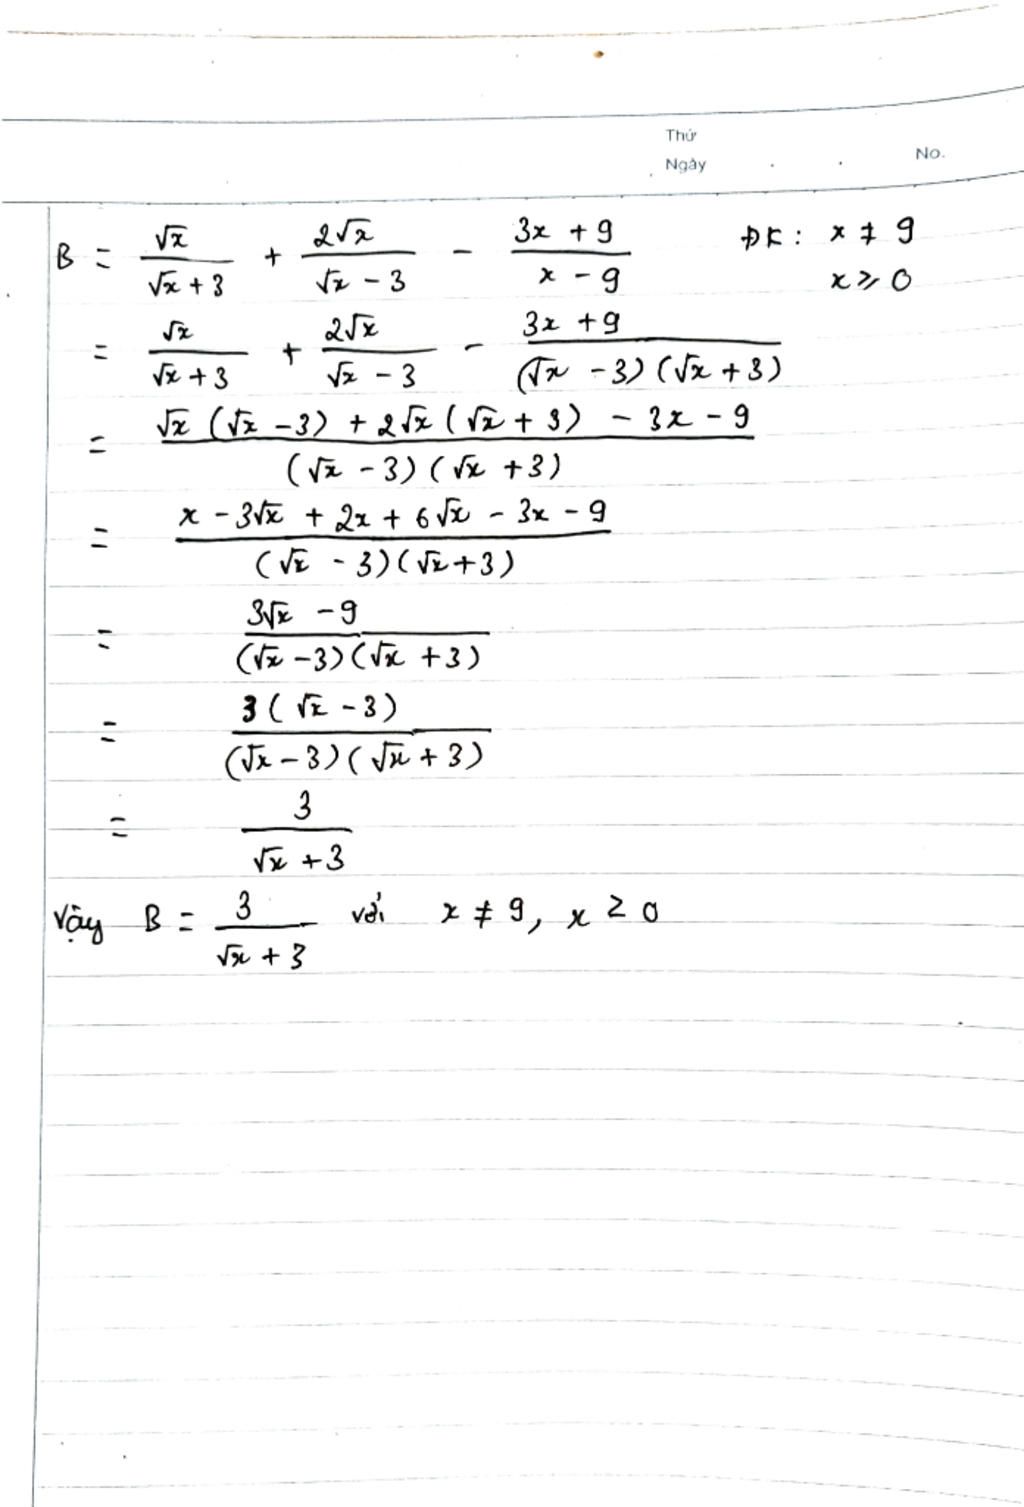 Thứ
Ngày . . No.
B = √x/(√x + 3) + 2√x/(√x - 3) - (3x + 9)/(x - 9) ĐK: x ≠ 9
x ⩾ 0
= √x/(√x + 3) + 2√x/(√x - 3) - (3x + 9)/((√x - 3)(√x + 3))
= (√x (√x - 3) + 2√x (√x + 3) - 3x - 9)/((√x - 3)(√x + 3))
= (x - 3√x + 2x + 6√x - 3x - 9)/((√x - 3)(√x + 3))
= (3√x - 9)/((√x - 3)(√x + 3))
= 3(√x - 3)/((√x - 3)(√x + 3))
= 3/(√x + 3)
Vậy B = 3/(√x + 3) với x ≠ 9, x ≥ 0